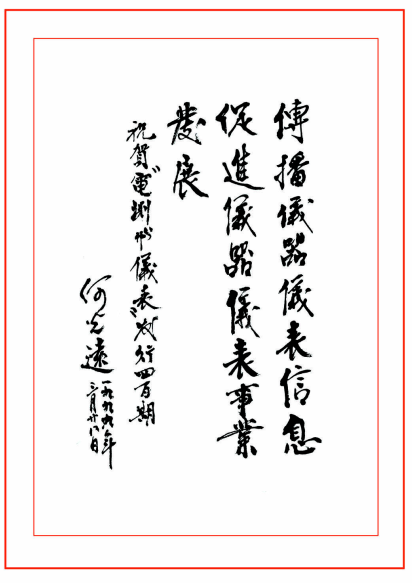 傳播儀器儀表信息
促進儀器儀表事業
發展
祝賀《電測与儀表》發行四百期
何光遠
一九九九年
三月廿八日